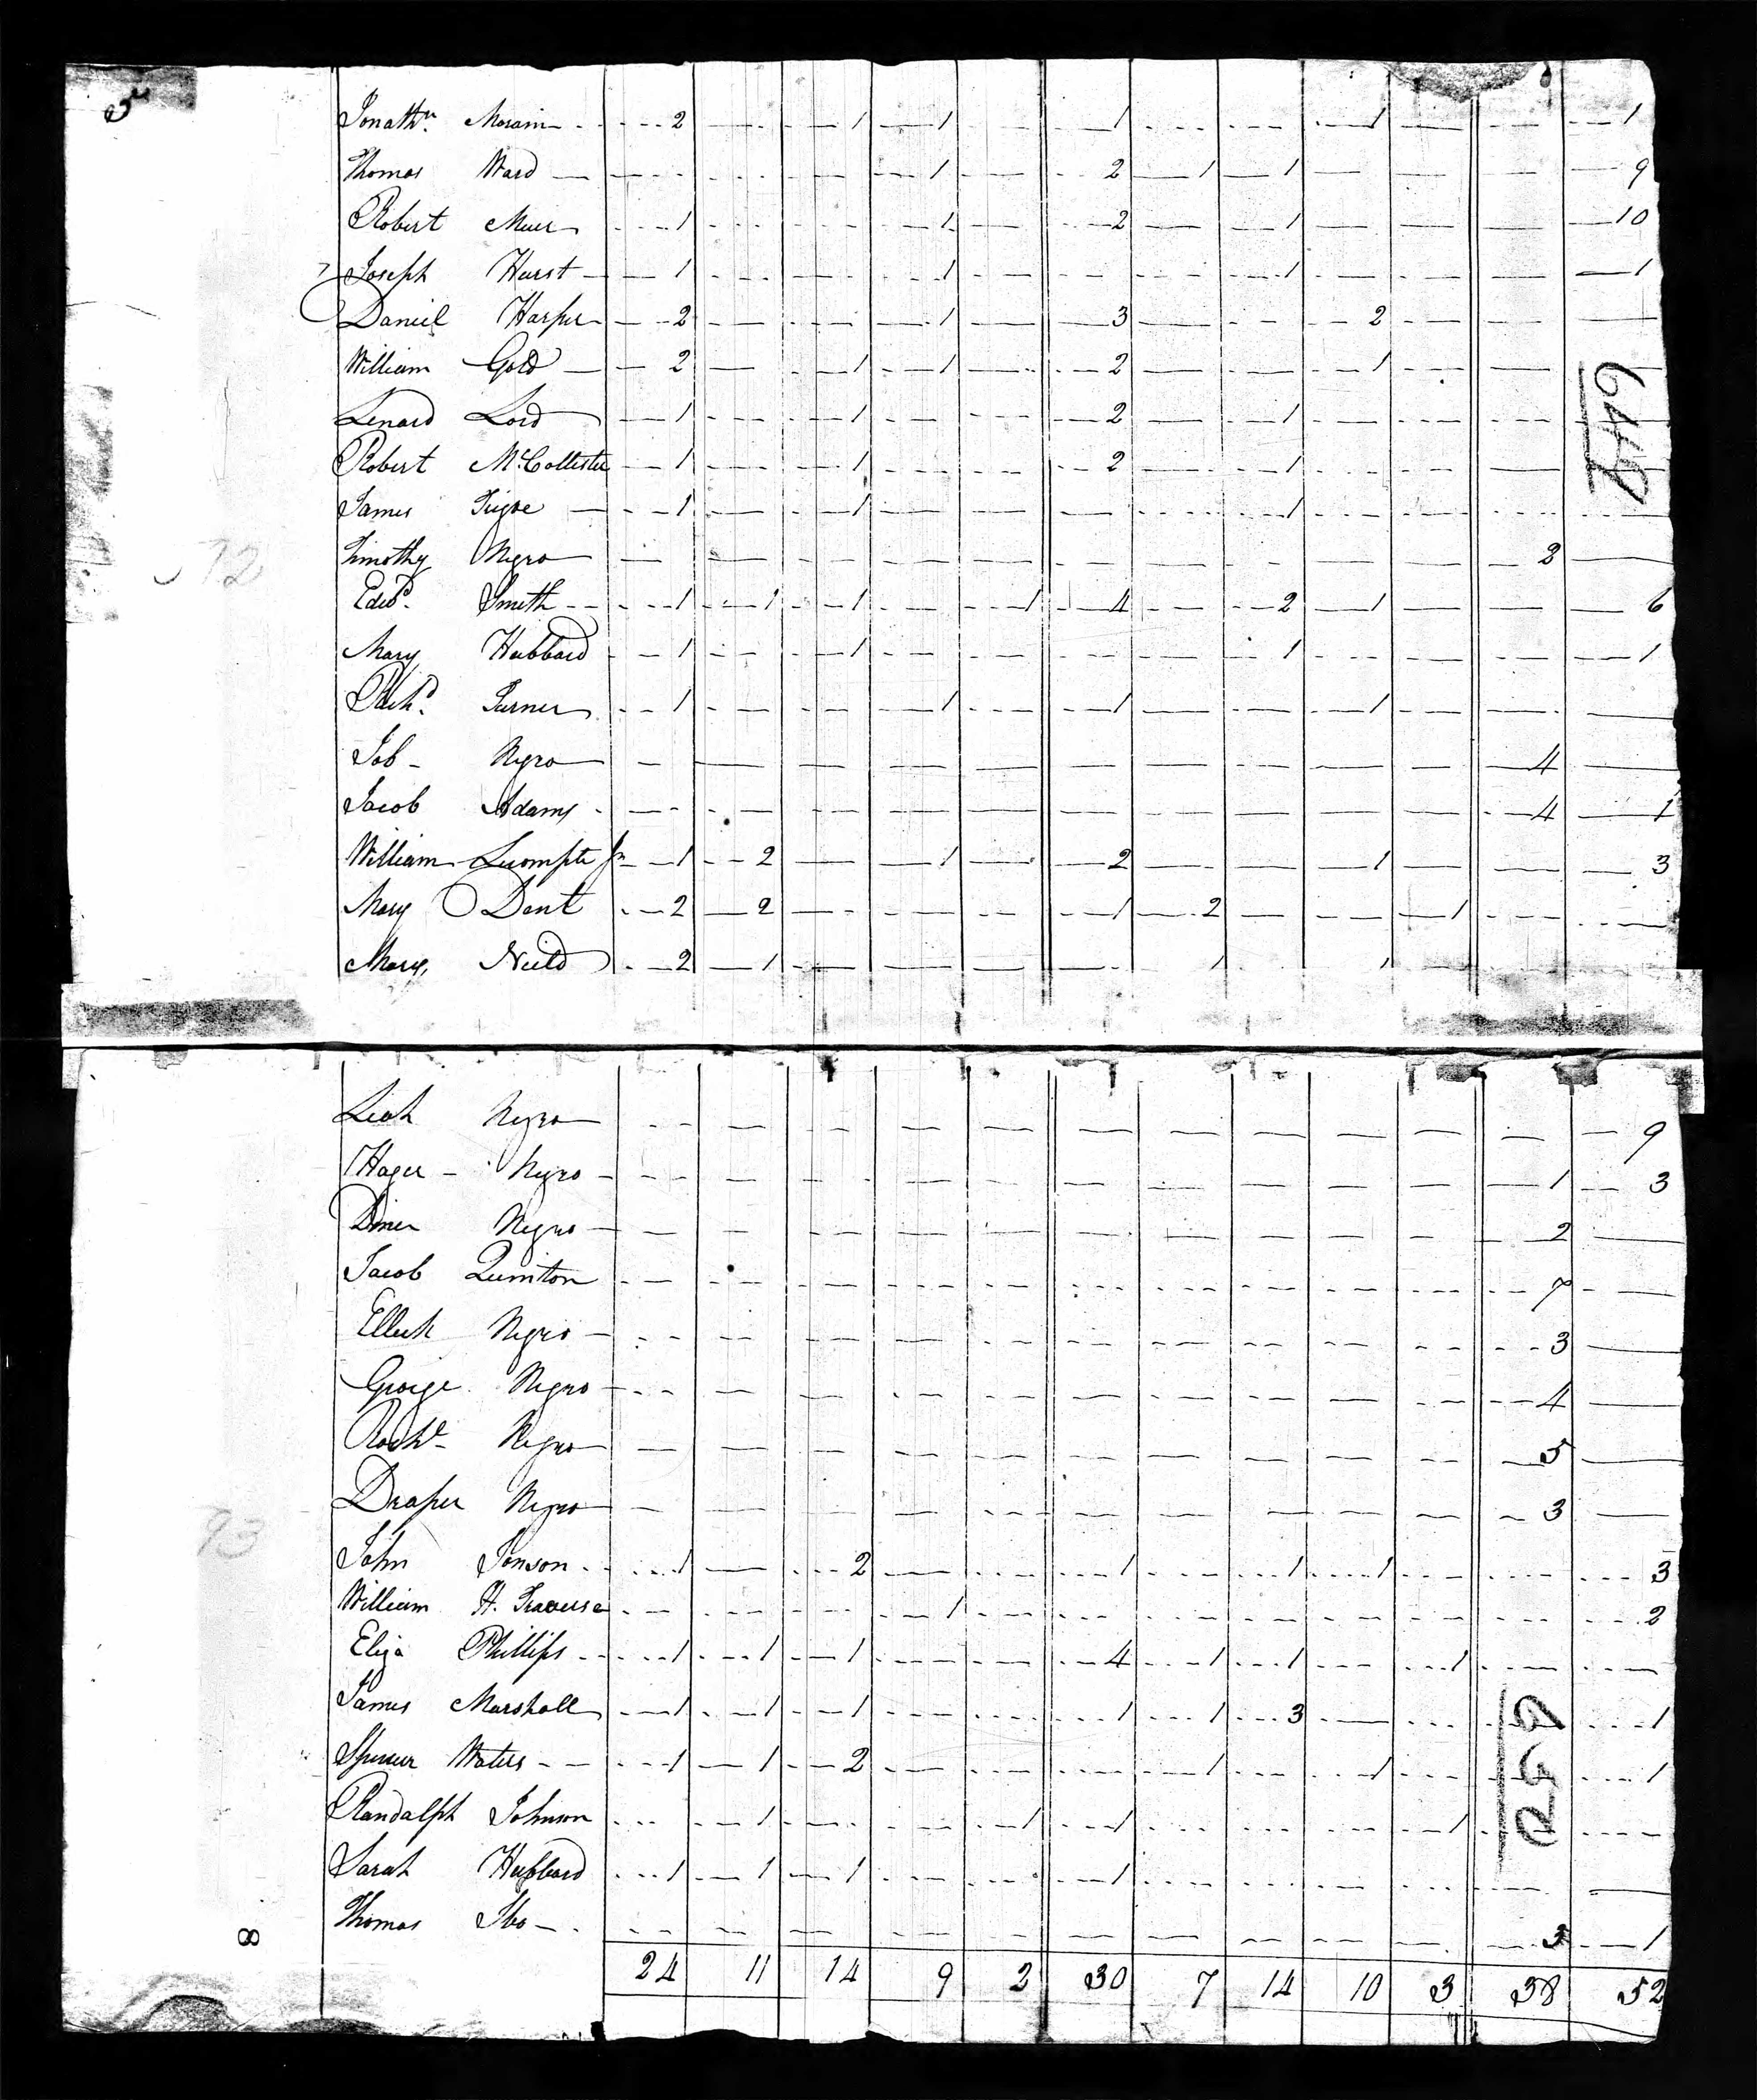 Jonathn. Morain 2 1 1 1 1 1
Thomas Ward 1 2 1 1 9
Robert Muir 1 1 2 1 10
7 Joseph Hurst 1 1 1 1
Daniel Harper 2 1 3 2
William Gold 2 1 1 2 1
Lenard Lord 1 1 2 1
Robert McCollister 1 1 2 1
649
James 1 1 1
Timothy Negro 2
72
Edwd. Smith 1 1 1 1 4 2 1 6
Mary Hubbard 1 1 1 1
Richd. Turner 1 1 1 1
Job Negro 4
Jacob Adams 4 1
William Lecompte Jr 1 2 1 2 1 3
Mary Dent 2 2 1 2 1
Mary Neild 2 1 1 1
Leah Negro 9
Hager Negro 1 3
Diner Negro 2
Jacob Quinton 7
Negro 3
George Negro 4
Negro 5
Draper Negro 3
93
John Jonson 1 2 1 1 1 3
William H. Traverse 1 2
Eliza Phillips 1 1 1 4 1 1 1
James Marshall 1 1 1 1 1 3 1
Spencer Waters 1 1 2 1 1 1
Randalph Johnson 1 1 1 1
Sarah Hubbard 1 1 1 1
Thomas 3 1
8
24 11 14 9 2 30 7 14 10 3 38 52